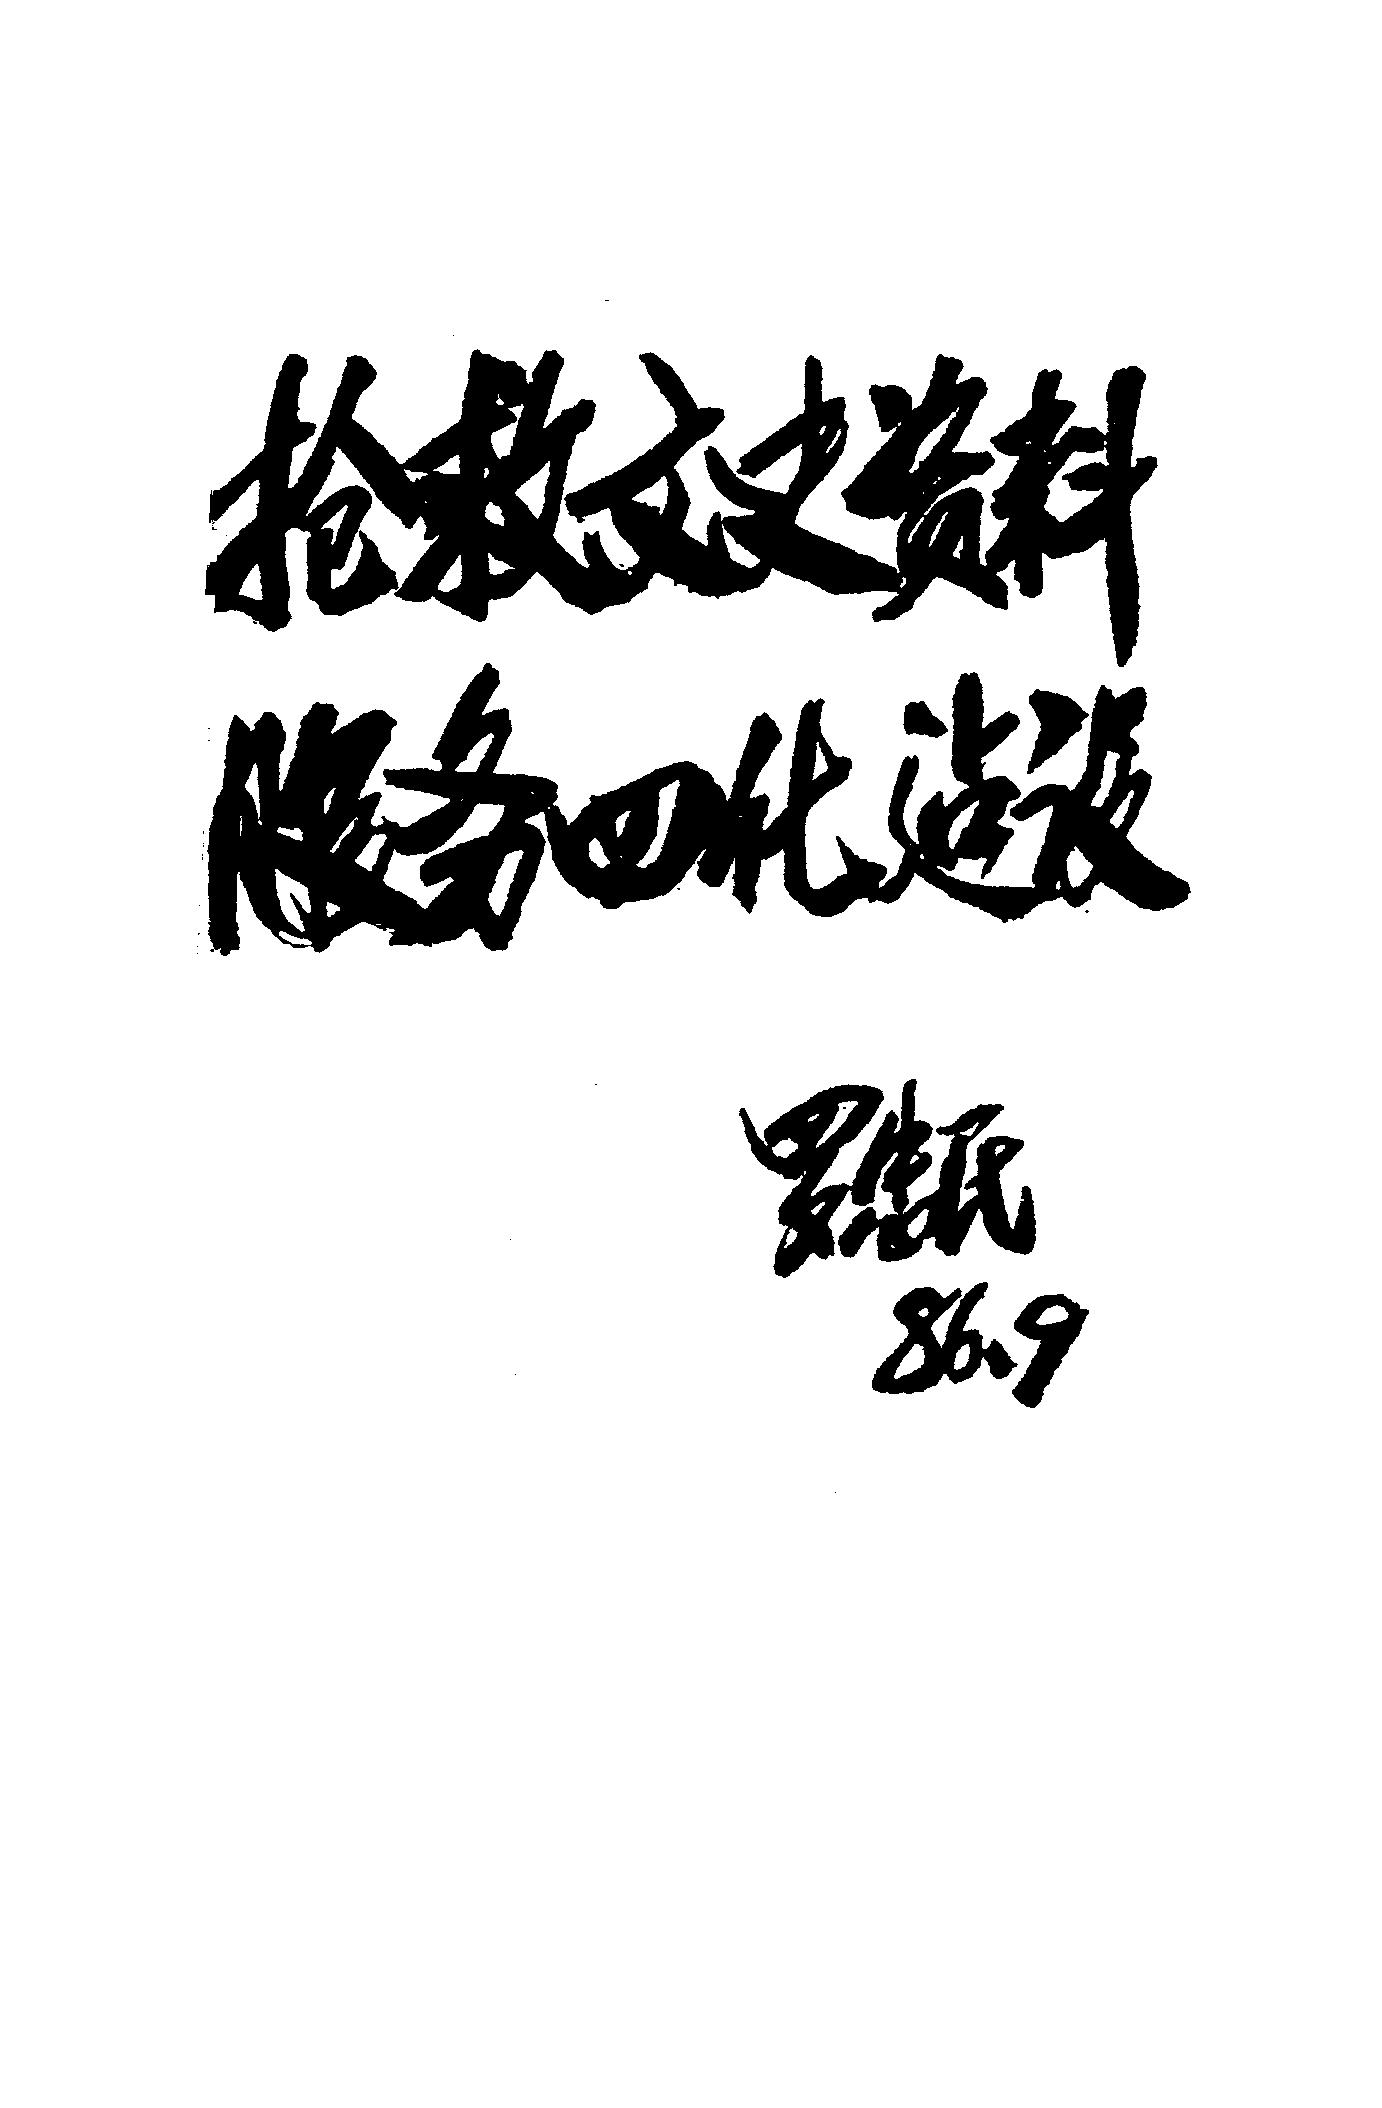 抢救文史资料
服务四化建设
罗 民
86.9